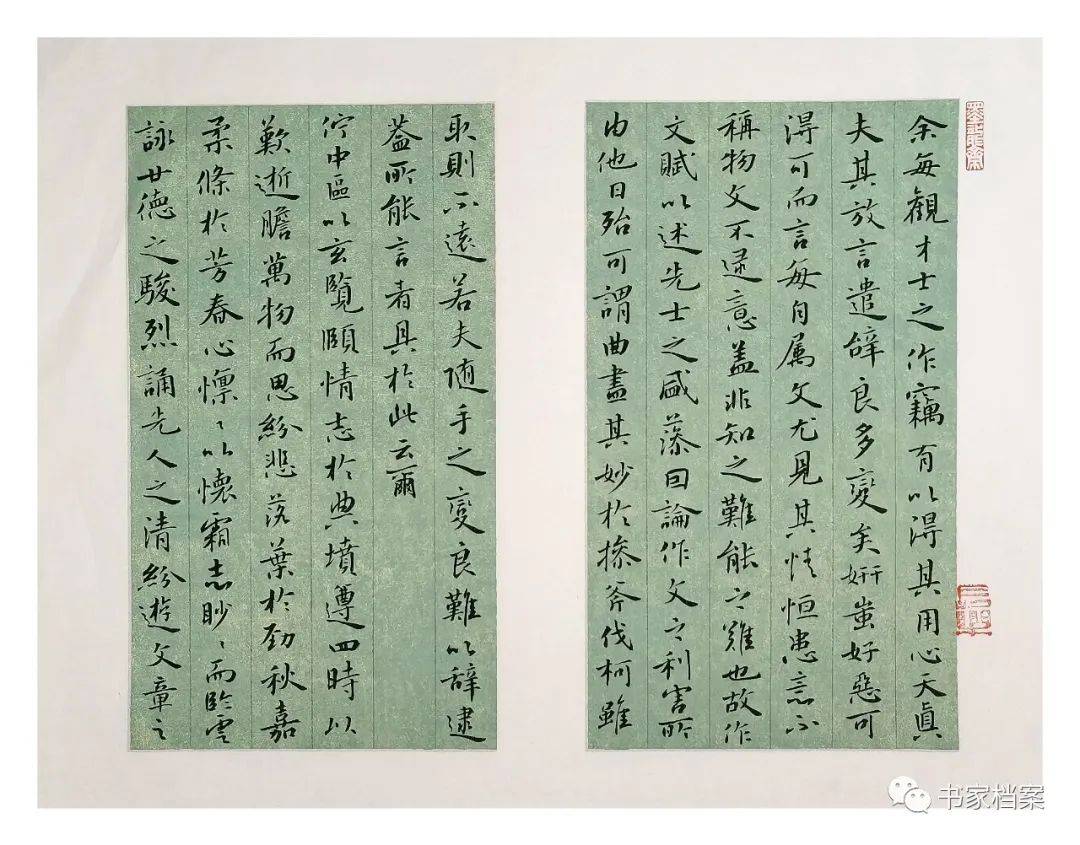 余每觀才士之作竊有以淂其用心天眞
夫其放言遣辝良多變矣妍蚩好惡可
淂可而言每自属文尤見其情恒患意不
稱物文不逮意盖非知之難能之難也故作
文賦以述先士之盛藻因論作文之利害所
由他日殆可謂曲盡其妙於操斧伐柯雖
取則不遠若夫随手之變良難以辭逮
葢所能言者具於此云爾
佇中區以玄覽頤情志於典墳遵四時以
歎逝瞻萬物而思紛悲落葉於勁秋嘉
柔條於芳春心懍〻以懷霜志眇〻而臨雲
詠世德之駿烈誦先人之清紛遊文章之
书家档案